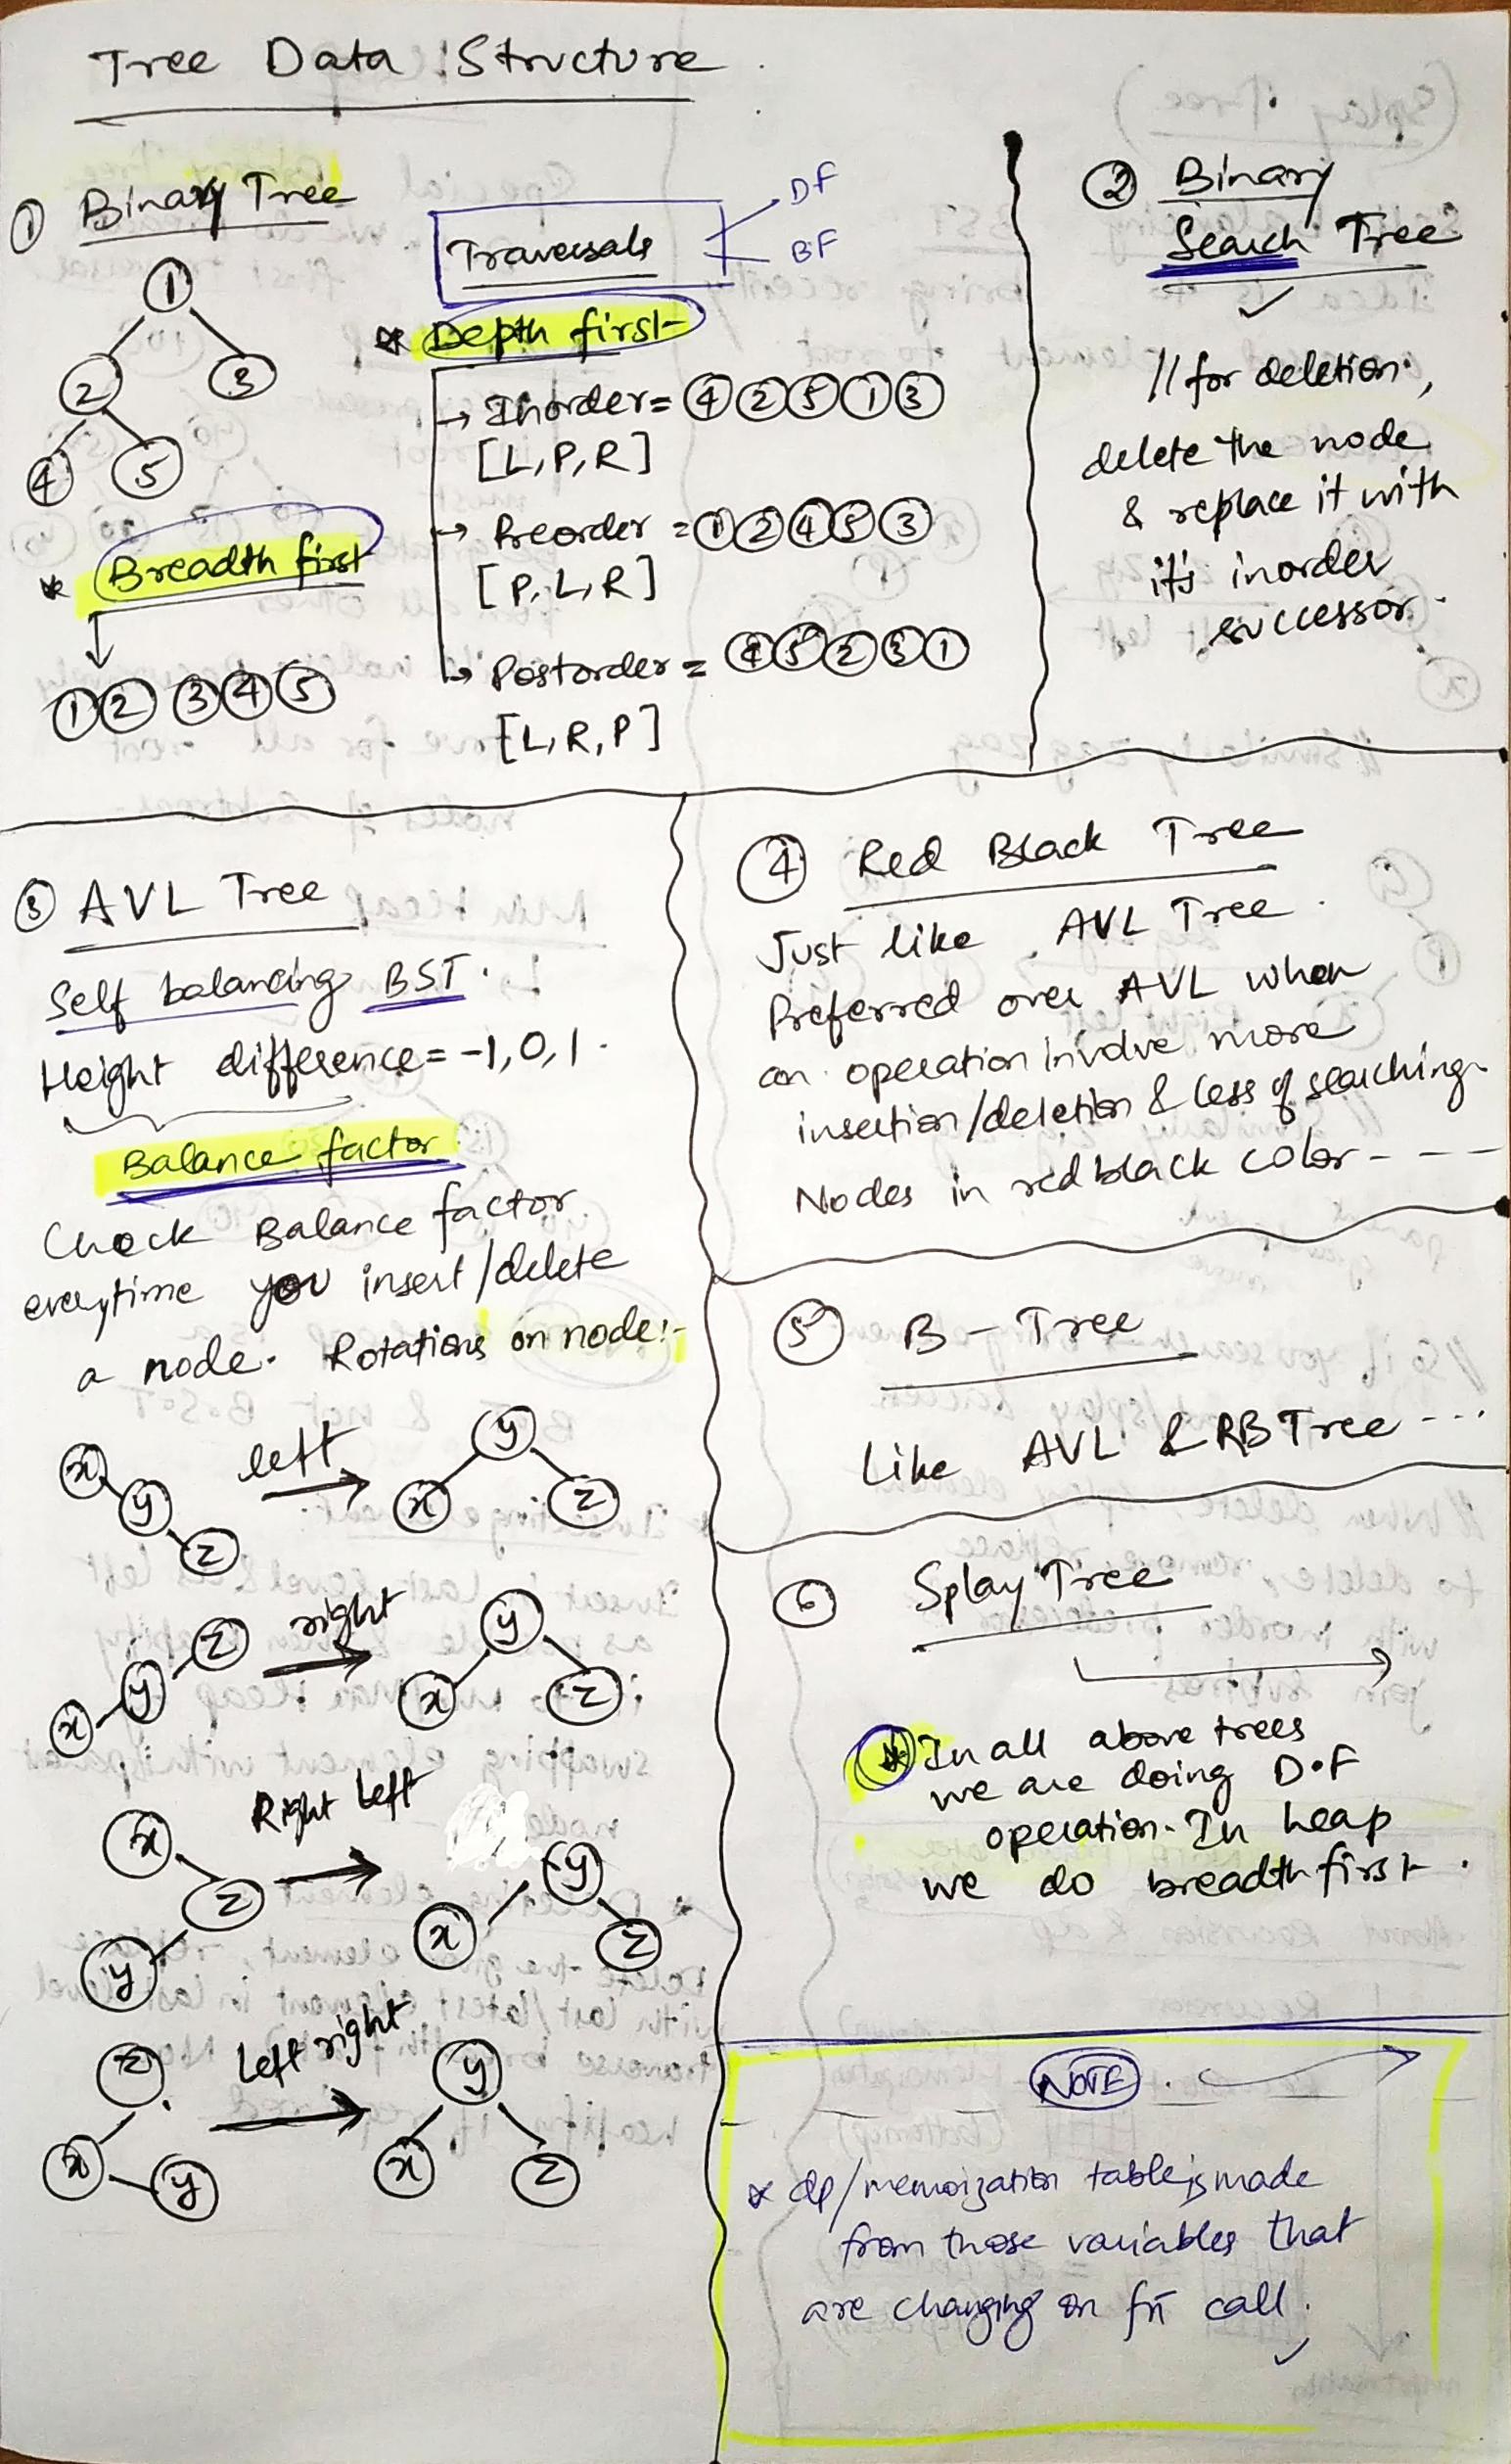 Tree Data Structure.
① Binary Tree
1
2 3
4 5
* Breadth first
① ② ③ ④ ⑤
Traversals
DF
BF
* Depth first
→ Inorder = ④ ② ⑤ ① ③
[L, P, R]
→ Preorder = ① ② ④ ⑤ ③
[P, L, R]
→ Postorder = ④ ⑤ ② ③ ①
[L, R, P]
② Binary
Search Tree
// for deletion,
delete the node
& replace it with
it's inorder
successor.
③ AVL Tree
Self balancing BST.
Height difference = -1, 0, 1.
Balance factor
Check Balance factor
everytime you insert/delete
a node. Rotations on node:-
x y z left y x z
x y z right y x z
x z y Right Left y x z
z x y Left right y x z
④ Red Black Tree
Just like AVL Tree.
Preferred over AVL when
an operation involve more
insertion/deletion & less of searching
Nodes in red black color - - -
⑤ B-Tree
Like AVL & RB Tree ---
⑥ Splay Tree
* In all above trees
we are doing D.F
operation. In heap
we do breadth first.
NOTE.
* dp/memoization table is made
from those variables that
are changing on fn call.